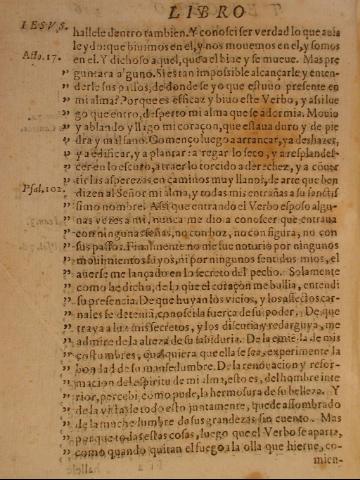 LIBRO
IESVS.
hallele dentro tambien. Y conosci ser verdad lo que auia
leydo: que biuimos en el, y nos mouemos en el, y somos
Acto. 17.
en el. Y dichoso aquel, que a el biue y se mueue. Mas pre
guntara alguno. Si es tan impossible alcançarle y enten-
derle sus passos, de donde se yo que estuuo presente en
mi alma? Porque es efficaz y biuo este Verbo, y assi lue
go que entro, desperto mi alma que se adormia. Mouio
y ablando y llago mi coraçon, que estaua duro y de pie
dra y mal sano. Començo luego a arrancar, ya deshazer,
y a edificar, y a plantar: a regar lo seco, y a resplandes-
cer en lo escuro, a traer lo torcido a derechez, y a cõuer
tir las asperezas en caminos muy llanos, de arte que ben
Psal. 102.
dizen al Señor mi alma, y todas mis entrañas a su sanctis
simo nombre. Assi que entrando el Verbo esposo algu-
nas vezes a mi, nunca me dio a conoscer que entraua
con ninguna señas, no con boz, no con figura, no con
sus passos. Finalmente no me fue notorio por ningunos
mouimientos suyos, ni por ningunos sentidos mios, el
auerse me lançado en lo secreto del pecho. Solamente
como he dicho, de la que el coraçon me bullia, entendi
su presencia. De que huyan los vicios, y los affectos car-
nales se detenia, conosci la fuerça de su poder. De que
traya a luz mis secretos, y los discutia y redarguya, me
admire de la alteza de su sabiduria. De la emienda de mis
costumbres, qualquiera que ella se sea, experimente la
bondad de su mansedumbre. De la renouacion y refor-
macion del espiritu de mi alma, esto es, del hombre inte
rior, percebi como pude, la hermosura de su belleza. Y
de la vista de todo esto juntamente, quede assombrado
de la muchedumbre de sus grandezas sin cuento. Mas
porque todas estas cosas, luego que el Verbo se aparta,
como quando quitan el fuego a la olla que hierue, co-
mien-